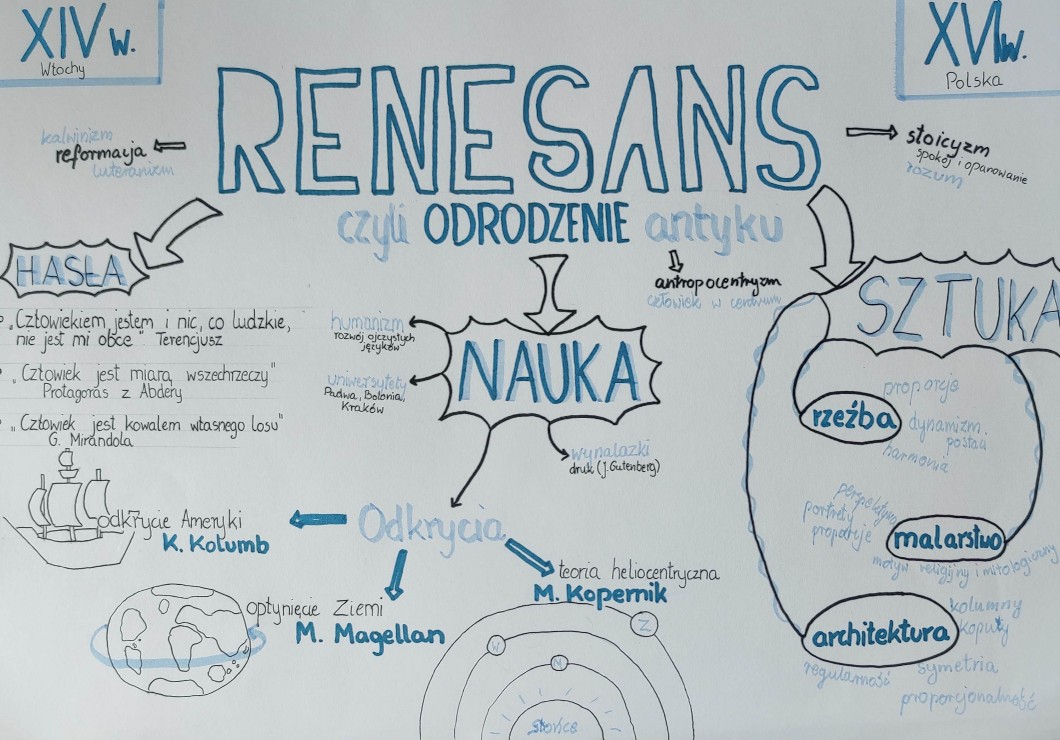 XIV w.
Włochy
XVI w.
Polska
RENESANS
czyli ODRODZENIE antyku
kalwinizm
reformacja
luteranizm
stoicyzm
spokój i opanowanie
rozum
antropocentryzm
człowiek w centrum
HASŁA
„Człowiekiem jestem i nic, co ludzkie,
nie jest mi obce" Terencjusz
„Człowiek jest miarą wszechrzeczy"
Protagoras z Abdery
„Człowiek jest kowalem własnego losu"
G. Mirandola
NAUKA
humanizm
rozwój ojczystych
języków
uniwersytety
Padwa, Bolonia,
Kraków
wynalazki
druk (J.Gutenberg)
Odkrycia
odkrycie Ameryki
K. Kolumb
opłynięcie Ziemi
M. Magellan
teoria heliocentryczna
M. Kopernik
Z
W
M
słońce
SZTUKA
rzeźba
proporcje
dynamizm
postaci
harmonia
malarstwo
perspektywa
portrety
proporcje
motyw religijny i mitologiczny
architektura
kolumny
kopuły
symetria
regularność
proporcjonalność